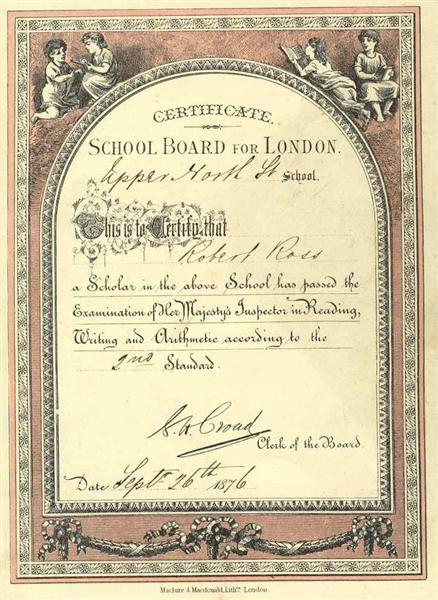 CERTIFICATE.
SCHOOL BOARD FOR LONDON.
Upper North St School.
This is to Certify that
Robert Ross
a Scholar in the above School has passed the
Examination of Her Majesty's Inspector in Reading,
Writing and Arithmetic according to the
2nd Standard.
G. H. Croad
Clerk of the Board.
Date Sept. 26th 1876
Maclure & Macdonald, Lithrs. London.